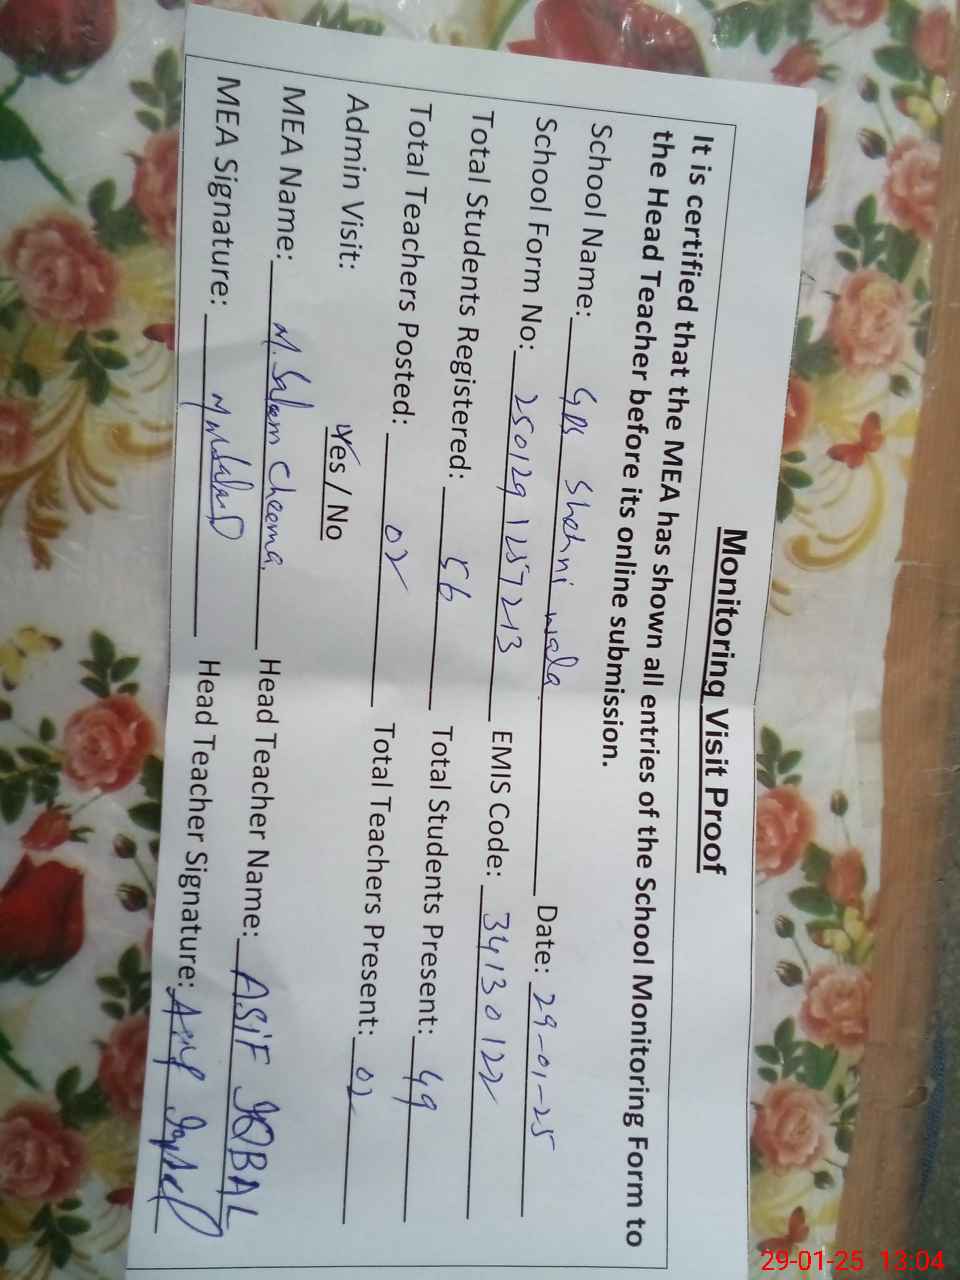 Monitoring Visit Proof
It is certified that the MEA has shown all entries of the School Monitoring Form to
the Head Teacher before its online submission.
School Name: GPS Shehni wala. Date: 29-01-25
School Form No: 2501291257213 EMIS Code: 34130122
Total Students Registered: 56 Total Students Present: 49
Total Teachers Posted: 02 Total Teachers Present: 02
Admin Visit: Yes / No
MEA Name: M. Saleem Cheema. Head Teacher Name: ASIF IQBAL
MEA Signature: Head Teacher Signature: Asif Iqbal
29-01-25 13:04